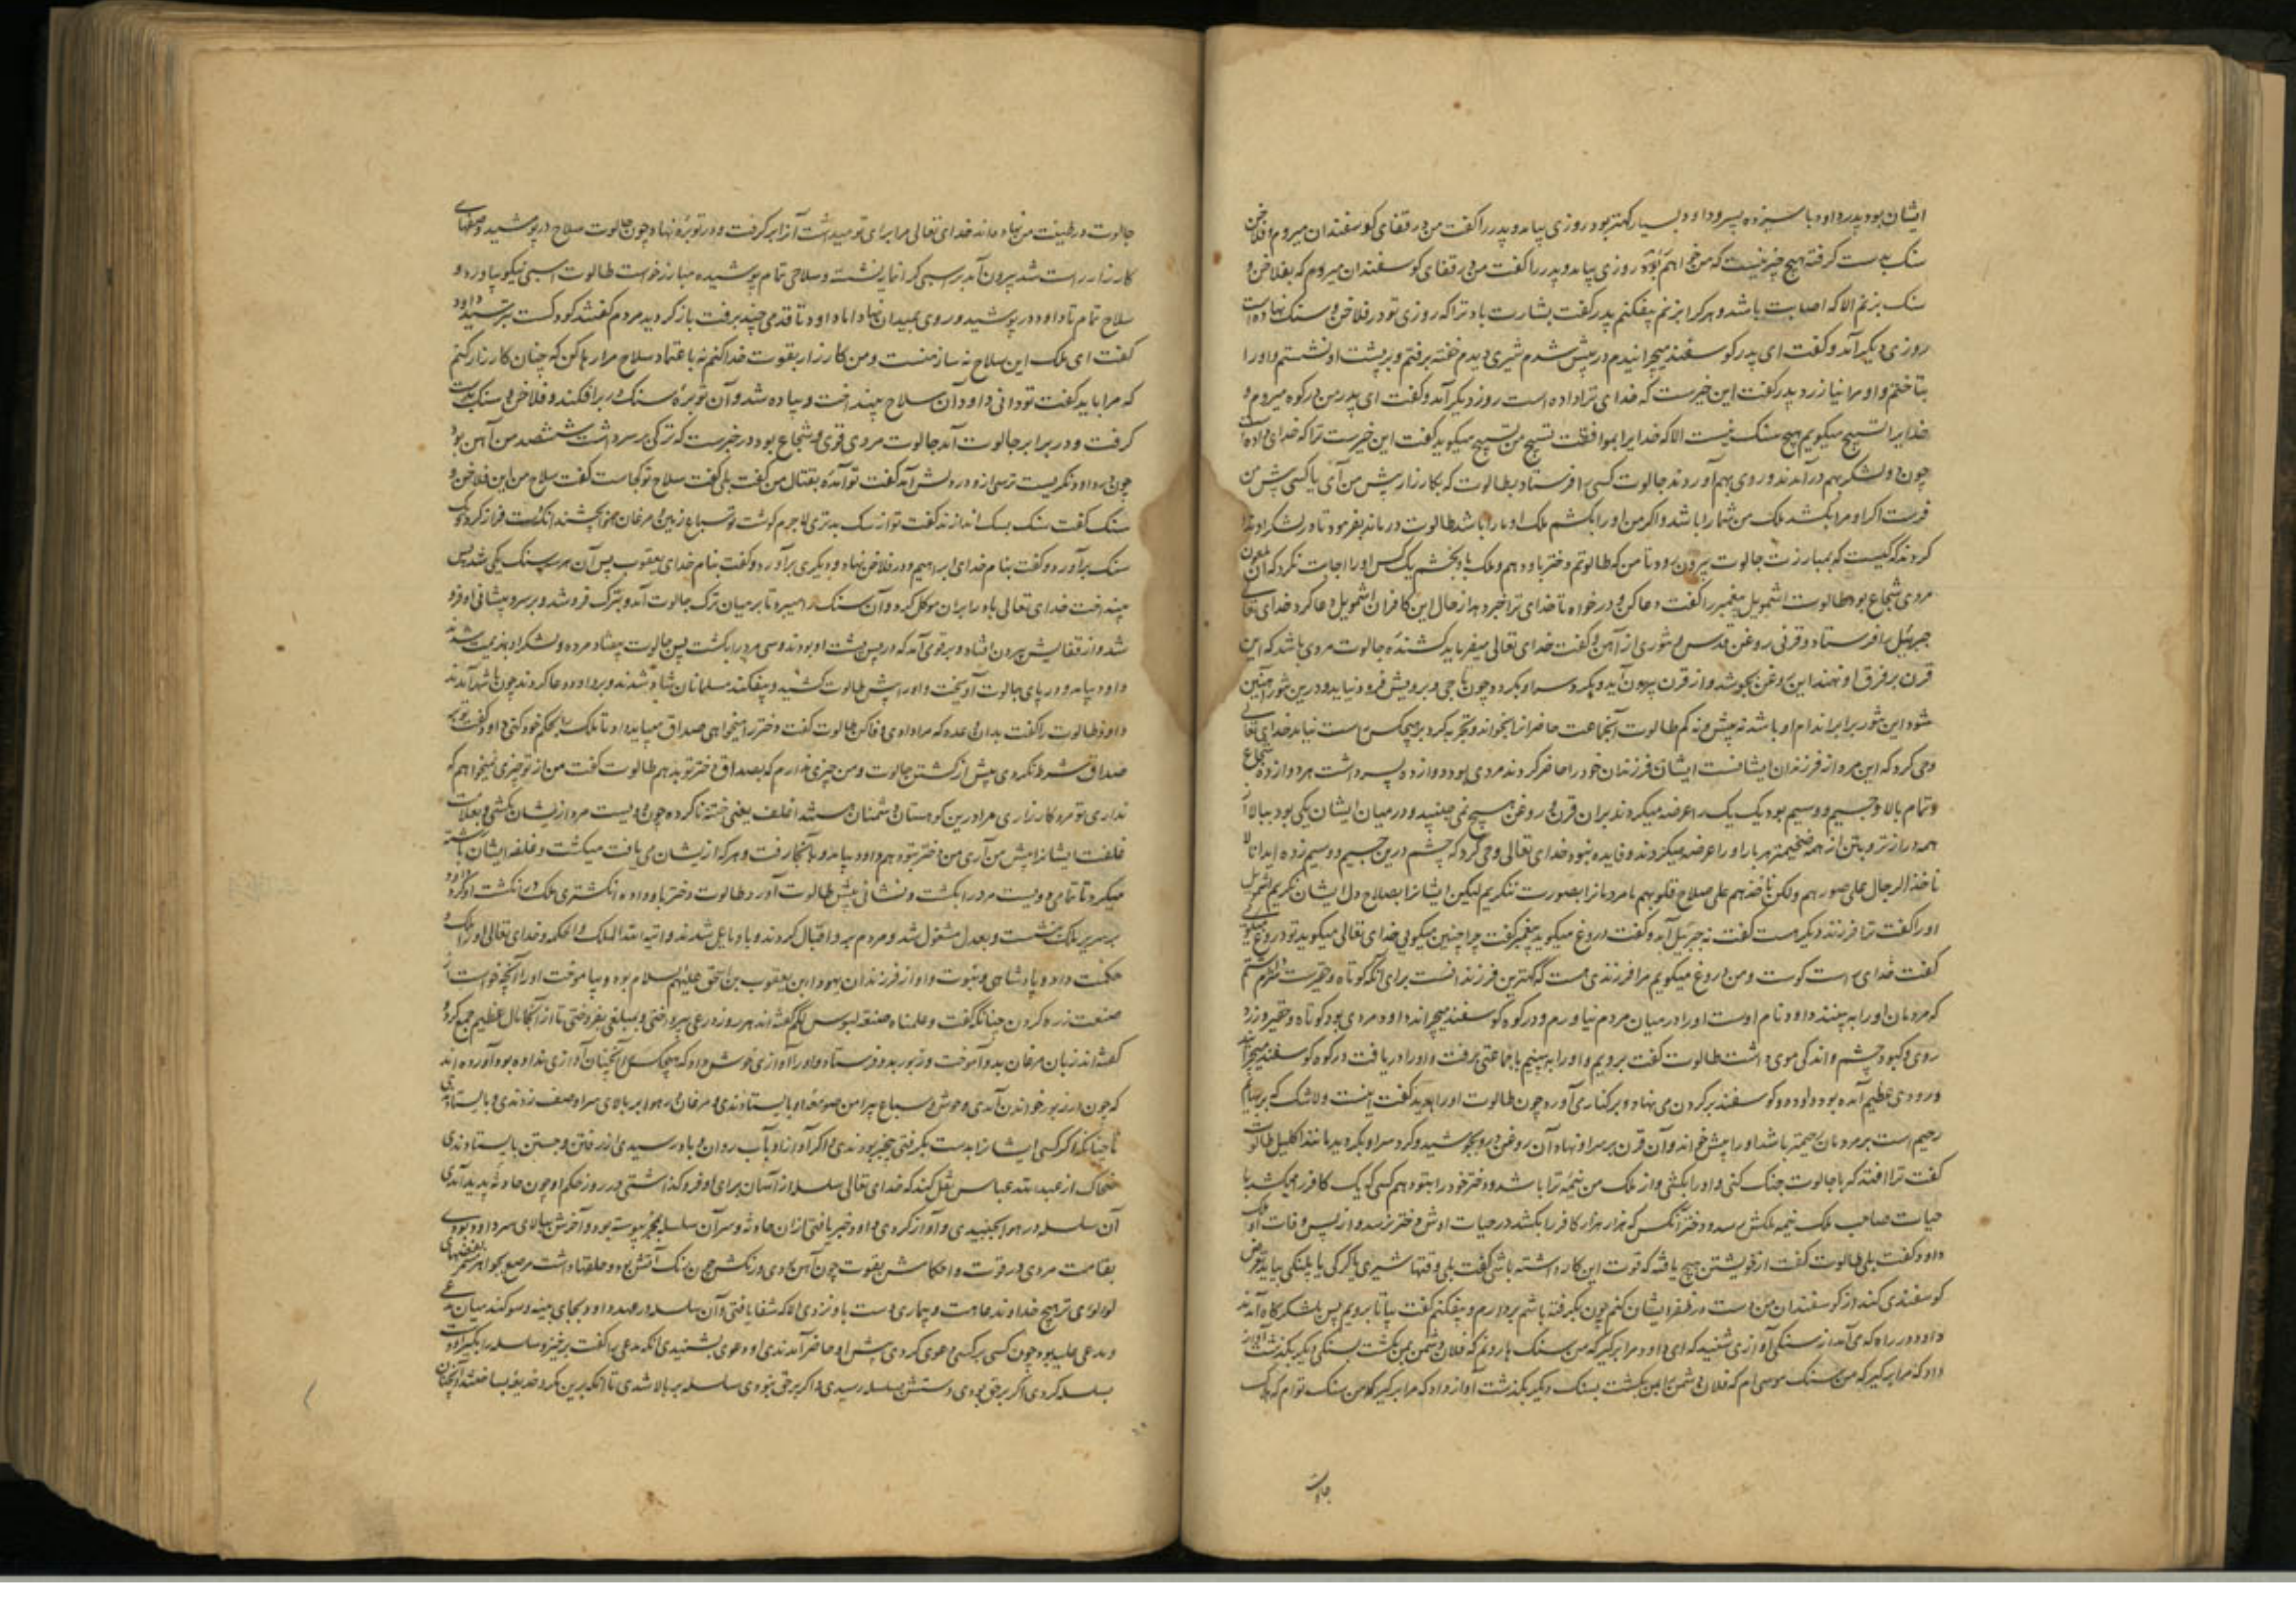 ایشان بود پدر داود با سیزده پسر و داود بسیار کهتر بود روزی بیامد و پدر را گفت من در قفای کوسفندان میروم و فلاخن
سنک بدست کرفته هیچ چیز نیست که من خواهم روزی بیامد و پدر را گفت من در قفای کوسفندان میروم که بفلاخن و
سنک بزنم الا که اصابت باشد و هر کرا بزنم بیفکنم پدر کفت بشارت باد ترا که روزی تو در فلاخن و سنک نهاده است
روزی دیکر آمد و کفت ای پدر کوسفند میچرانیدم در بیش شدم شیری دیدم خفته برفتم و بر پشت او نشستم و او را
بتاختم و او مرا نیازرد پدر کفت این خیرست که خدای ترا داده است روز دیکر آمد و کفت ای پدر من در کوه میروم و
خدایرا تسبیح میکویم هیچ سنک نیست الا که خدایرا بموافقت تسبیح من تسبیح میکوید کفت این خیرست ترا که خدای داده است
چون دو لشکر بهم در آمدند و روی بهم آوردند جالوت کسی را فرستاد بطالوت که بکارزار پیش من آی یا کسی پیش من
فرست اکر او مرا بکشد ملک من شما را باشد و اکر من او را بکشم ملک او مارا باشد طالوت در ماند بفرمود تا در لشکر او ندا
کردند که کیست که بمبارزت جالوت بیرون رود تا من که طالوتم دختر باو دهم و ملک باو بخشم یک کس او را اجابت نکرد که آن ملعون
مردی شجاع بود طالوت اشمویل پیغمبر را کفت دعا کن و درخواه تا خدای ترا خبر دهد از حال این کافران اشمویل دعا کرد خدای تعالی
جبرئیل را فرستاد و قرنی روغن قدس و تنوری از آهن و کفت خدای تعالی میفرماید کشندهٔ جالوت مردی باشد که این
قرن بر فرق او نهند این روغن بجوشد و از قرن بیرون آید و بکرد سر او بکردد چون تاجی و بر رویش فرو نیاید و درین تنور آهنین
شود این تنور برابر اندام او باشد نه بیش و نه کم طالوت آنجماعت حاضرانرا بخواند و تجربه کرد بر هیچکس راست نیامد خدای تعالی
وحی کرد که این مرد از فرزندان ایشانست ایشان فرزندان خود را حاضر کردند مردی بود دوازده پسر داشت هر دوازده شجاع
و تمام بالا و جسیم و وسیم بود یک یک را عرضه میکردند بران قرن و روغن هیچ نمی جنبید و در میان ایشان یکی بود ببالا از
همه درازتر و بتن از همه ضخیمتر هر بار او را عرضه میکردند و فایده نبود خدای تعالی وحی کرد که چشم درین جسیم و وسیم زده اید انا لا
ناخذ الرجال علی صورهم ولکن ناخذهم علی صلاح قلوبهم ما مردمانرا بصورت ننکریم لیکن ایشانرا بصلاح دل ایشان نکریم اشمویل
او را کفت ترا فرزند دیکر هست کفت نه جبرئیل آمد و کفت دروغ میکوید پیغمبر کفت چرا چنین میکویی خدای تعالی میکوید تو دروغ میکوی
کفت خدای راست کوست و من دروغ میکویم مرا فرزندی هست که کهترین فرزندانست برای آنکه کوتاه و حقیرست شرم داشتم
که مردمان او را به بینند داود نام اوست او را در میان مردم نیاورم و در کوه کوسفند میچراند داود مردی بود کوتاه و حقیر و زرد
روی و کبود چشم و اندکی موی داشت طالوت کفت برویم و او را به بینیم با جماعتی برفت و او را دریافت در کوه کوسفند میچراند
و رودی عظیم آمده بود و او دو دو کوسفند بر کردن می نهاد و بر کناری آورد چون طالوت او را بدید کفت اینست و لا شک که بر بهایم
رحیم است بر مردمان رحیمتر باشد او را پیش خواند و آن قرن بر سر او نهاد آن روغن درو بجوشید و کرد سر او بکردید مانند اکلیل طالوت
کفت ترا افتد که با جالوت جنک کنی و او را بکشی و از ملک من نیمه ترا باشد و دختر خود را بتو دهم
حیات صاحب ملک نیمه ملکش رسد و دختر آنکس که هزار هزار کافر را بکشد در حیات او
داود کفت بلی طالوت کفت از خویشتن هیچ یافتهٔ که قوت این کار داشته باشی کفت بلی وقتها شیری یا کرکی یا پلنکی بیاید تعرض
کوسفندی کند از کوسفندان من کفت بیا تا برویم پس بلشکرگاه آمدند
داود در راه که می آمد از سنکی آوازی شنید که ای داود مرا برکیر که من سنک هارونم که فلان دشمن بمن بکشت بسنکی دیکر بکذشت آواز
داد که مرا برکیر که من سنک موسی ام که فلان دشمن را بمن بکشت بسنک دیکر بکذشت آواز داد که مرا برکیر که من سنک توام که هلاک
جالوت
جالوت در طینت من نهاده‌اند خدای تعالی مرا برای تو میداشت آنرا برکرفت و در توبره نهاد و چون جالوت سلاح در پوشید و صفهای
کارزار راست شد بیرون آمد بر اسبی کرانمایه نشسته و سلاحی تمام پوشیده مبارز خواست طالوت اسبی نیکو بیاورد و
سلاح تمام تا داود در پوشید و روی بمیدان نهاد اما داود تا قدمی چند برفت باز کردید مردم کفتند کودکست بترسید داود
کفت ای ملک این سلاح نه ساز منست و من کارزار بقوت خدا کنم نه باعتماد سلاح مرا رها کن که چنان کارزار کنم
که مرا باید کفت تو دانی داود آن سلاح بینداخت و پیاده شد و آن توبرهٔ سنک در بر افکند و فلاخن و سنک بدست
کرفت و در برابر جالوت آمد جالوت مردی قوی و شجاع بود در خبرست که ترکی بر سر داشت ششصد من آهن بود
چون در داود نکریست ترسی ازو در دلش آمد کفت تو آمدهٔ بقتال من کفت بلی کفت سلاح تو کجاست کفت سلاح من این فلاخن و
سنک کفت سنک بسک اندازند کفت تو از سک بدتری لاجرم کوشت تو سباع زمین و مرغان هوا بچشند
سنک برآورد و کفت بنام خدای ابراهیم و در فلاخن نهاد و دیکری برآورد و کفت بنام خدای یعقوب پس آن هر سه سنک یکی شد پس
بینداخت خدای تعالی باد را بران موکل کرد و آن سنک را میبرد تا بر میان ترک جالوت آمد و بترک فرو شد و بر سر و پیشانی او فرو
شد و از قفایش بیرون افتاد و بر قومی آمد که در پس پشت او بودند و سی مرد را بکشت پس جالوت بیفتاد مرده و لشکر او بهزیمت شدند
داود بیامد و در پای جالوت آویخت و او را پیش طالوت کشید و بیفکند مسلمانان شاد شدند و بر داود دعا کردند چون باشهر آمدند
داود طالوت را کفت بدان وعده که مرا دادی وفا کن طالوت کفت دختر را میخواهی صداق میباید داد تا ملک را بحکم خود کنی داود کفت تو بر من
صداق شرط نکردی بیش از کشتن جالوت و من چیزی ندارم که بصداق دختر تو بدهم طالوت کفت من از تو چیزی نمیخواهم که
نداری تو مرد کارزاری ما را درین کوهستان دشمنان هستند اغلف یعنی ختنه ناکرده چون دویست مرد از یشان بکشی و بعلامت
غلفت ایشانرا پیش من آری من دختر بتو دهم داود بیامد و بآنجا رفت و هر که از یشان می یافت میکشت و غلفه ایشان با رشته
میکرد تا تمامی دویست مرد را بکشت و نشانی پیش طالوت آورد طالوت دختر باو داد و انکشتری ملک در انکشت او کرد داود
بر سریر ملک بنشست و بعدل مشغول شد و مردم برو اقبال کردند و باو مایل شدند و آتیه الله الملک والحکمه و خدای تعالی او را ملک و
حکمت داد و پادشاهی و نبوت و او از فرزندان یهودا بن یعقوب بن اسحق علیهم السلام بود و بیاموخت او را آنچه خواست از
صنعت زره کردن چنانکه کفت و علمناه صنعة لبوس لکم کفته‌اند هر روز درعی بپرداختی و بمبلغی بفروختی تا از آنجا مال عظیم جمع کرد و
کفته‌اند زبان مرغان بدو آموخت و زبور بدو فرستاد و او را آوازی خوش داد که هیچکس را آنچنان آوازی نداده بود آورده‌اند
که چون او زبور خواندن آمدی وحوش و سباع پیرامن صومعهٔ او بایستادندی و مرغان در هوا بر بالای سر او صف زدندی و بایستادندی
تا چنانکه اکر کسی ایشانرا بدست بکرفتی بیخبر بودندی و اکر آواز او بآب روان و باد رسیدی از رفتن و جستن بایستادندی
ضحاک از عبدالله عباس نقل کند که خدای تعالی سلسله از آسمان برای او فرو کذاشتی در روز حکم او چون حادثهٔ پدید آمدی
آن سلسله در هوا بجنبیدی و آواز کردی داود خبر یافتی از ان حادثه و سر آن سلسله بمجره پیوسته بود و آخرش ببالای سر داود بودی
بقامت مردی در قوت و احکامش بقوت چون آهن بودی و رنکش چون رنک آتش بود و حلقها داشت مرصع بجواهر
لولوی تر هیچ خداوند عاهت و بیماری دست باو نزدی الا که شفا یافتی و آن سلسله در عهد داود بجای بینه و سوکند میان مدعی
و مدعی علیه بود چون کسی بر کسی دعوی کردی پیش او حاضر آمدندی او دعوی بشنیدی آنکه مدعی را کفت برخیز و سلسله را بکیر او دست
بسلسله کردی اکر بر حق بودی دستش بسلسله رسیدی و اکر بر حق نبودی سلسله بر بالا شدی تا آنکه برین مکر و خدیعه بساختند